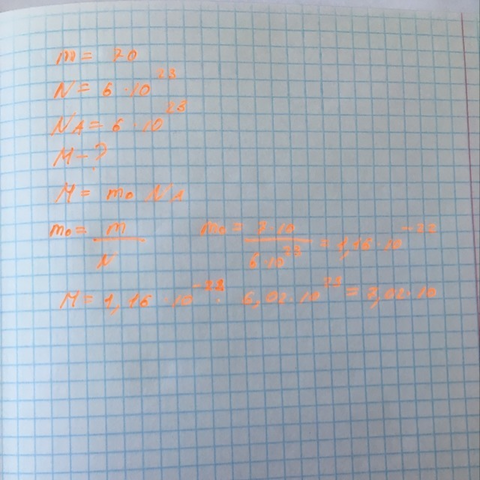 m = 70
N = 6 · 10²³
N_A = 6 · 10²³
M - ?
M = m₀ N_A
m₀ = m/N m₀ = 7·10/6·10²³ = 1,16 · 10⁻²²
M = 1,16 · 10⁻²² · 6,02 · 10²³ = 7,02 · 10